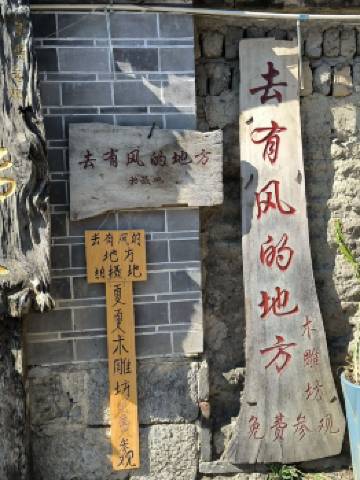 去有风的地方
拍摄地
去有风的
地方
拍摄地
夏夏木雕坊
参观
去有风的地方
木雕坊
免费参观